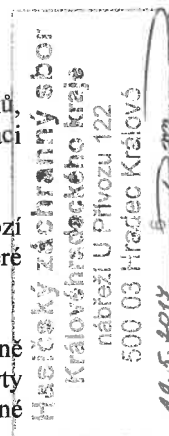 ů,
ci
zí
ré
né
ty
né
Hasičský záchranný sbor
Královéhradeckého kraje
nábřeží U Přívozu 122
500 03 Hradec Králové